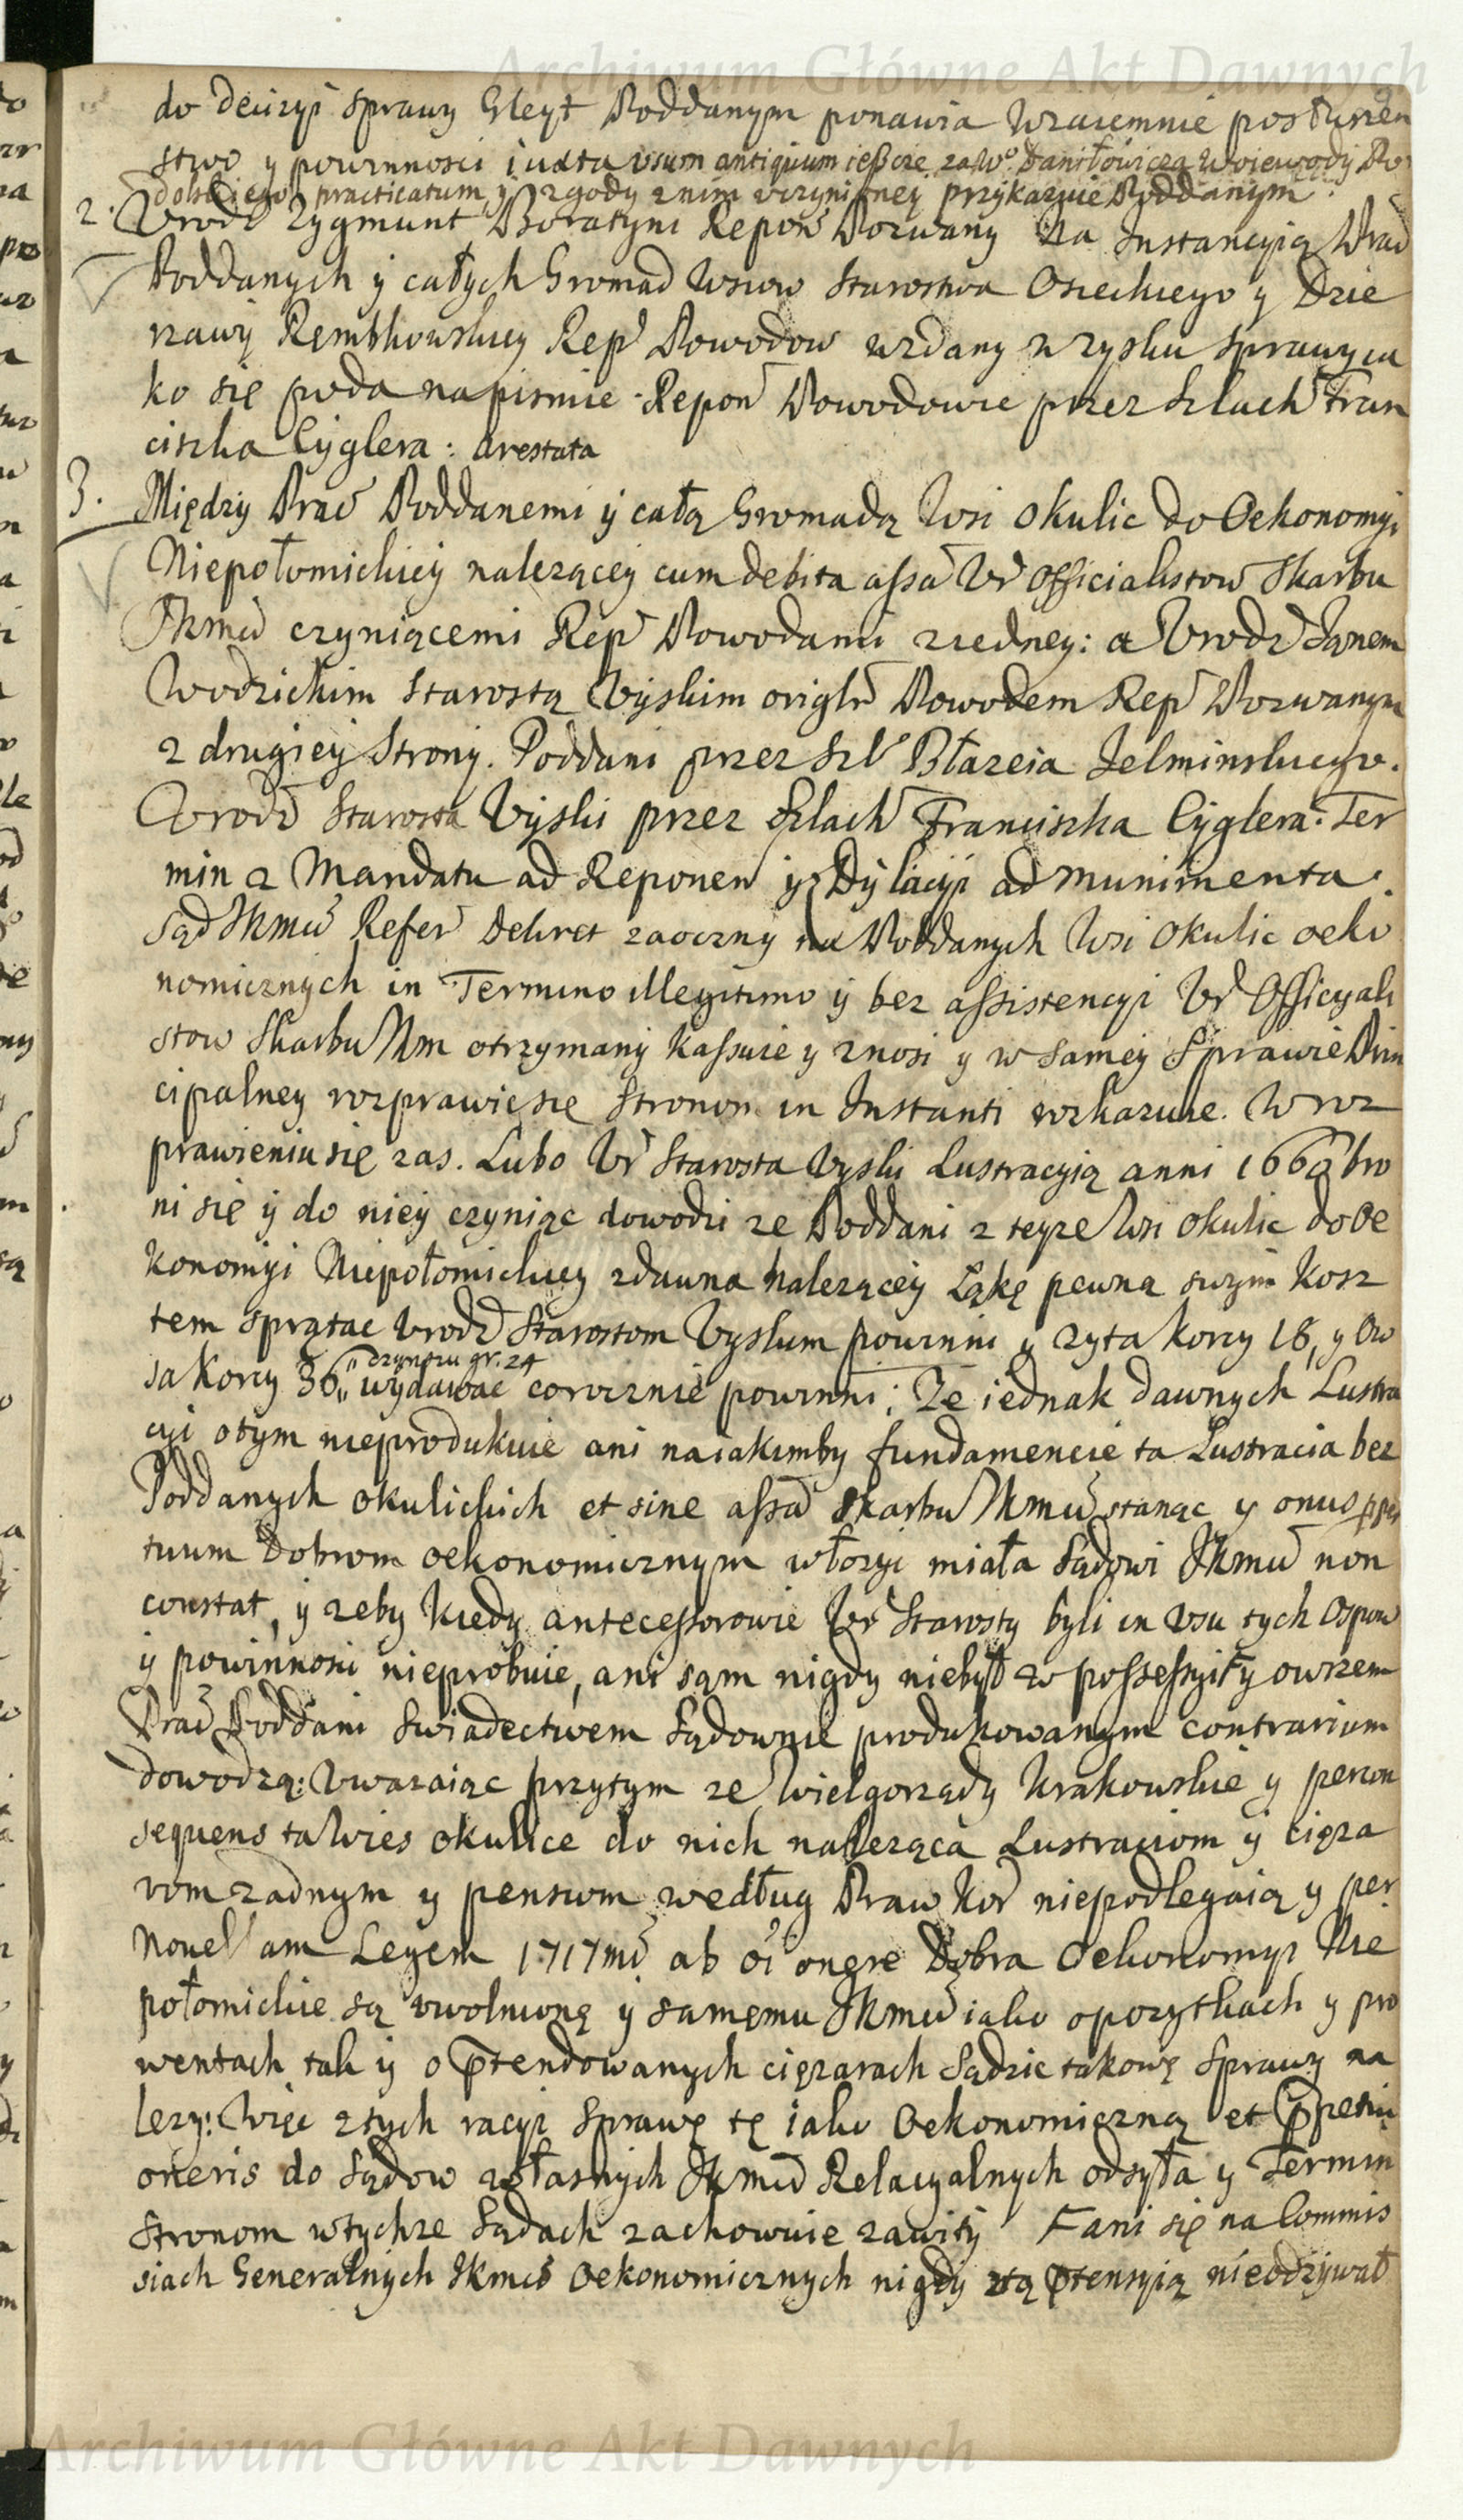 Archiwum Główne Akt Dawnych
do decizyi sprawy Gleyt Poddanym ponawia Wzaiemnie posłuszen
stwo y powinnosci iuxta vsum antiquum ieszcze za Wo Daniłowicza Woiewody Po
dolskiego practicatum y zgody z nim vczynioney przykazuie Poddanym
2. Vrodz Zygmunt Boratyni Repon Pozwany Na Instancyią Prac
Poddanych y całych Gromad Wsiow Starostwa Osieckiego y Dzie
rzawy Rembkowskiey Rep Powodow wzdany w zysku sprawy ia
ko się poda na pismie. Repon Powodowie przez Szlach Fran
ciszka Cyglera: Arestata
3. Między Prac Poddanemi y całą Gromadą Wsi Okulic do Oekonomyi
Niepołomickiey nalezącey cum debita assa Vr Officialistow Skarbu
Jkmci czyniącemi Rep Powodami z iedney: a Vrodz Janem
Wodzickim Starostą Uyskim origlr Powodem Rep Pozwanym
z drugiey Strony. Poddani przez Szl Błazeia Jelminskiego.
Vrodz Starosta Uyski przez Szlach Franciszka Cyglera. Ter
min z Mandatu ad Reponen y z Dylacyi ad munimenta.
Sąd Jkmci Refer Dekret zaoczny na Poddanych Wsi Okulic oeko
nomicznych in Termino illegitimo y bez assistencyi Vr Officyali
stow Skarbu Jkm otrzymany kassuie y znosi y w samey Sprawie Prin
cipalney rozprawić się Stronom in Instanti rozkazuie. W roz
prawieniu się zas. Lubo Vr Starosta Uyski Lustracyią anni 1660 bro
ni się y do niey czyniąc dowodzi ze Poddani z teyze Wsi Okulic do Oe
konomyi Niepołomickiey zdawna nalezącey Łąkę pewną swym kosz
tem sprątac Vrodz Starostom Uyskim powinni y zyta korcy 18, y Ow
sa korcy 36 „czynszu gr. 24 wydawac corocznie powinni; Ze iednak dawnych Lustra
cyi o tym nieprodukuie ani na iakimby fundamencie ta Lustracia bez
Poddanych okulickich et sine assa Skarbu Jkmci stanąc y onus ppe
tuum Dobrom oekonomicznym włozyc miała Sądowi Jkmci non
constat, y zeby kiedy antecessorowie Vr Starosty byli in vsu tych Ospow
y powinnosci nieprobuie, ani sąm nigdy niebył w possessyi y owszem
Prac Poddani swiadectwem sądownie produkowanym contrarium
dowodzą: Vwazaiąc przytym ze Wielgorządy Krakowskie y percon
sequens ta Wies Okulice do nich naleząca Lustraciom y cięza
rom zadnym y pensiom według Praw Kor niepodlegaią y per
Nouellam Legem 1717mi ab oi onere Dobra Oekonomyi Nie
połomickie są vwolnionę y samęmu Jkmci iako o pozytkach y pro
wentach tak y o ptendowanych cięzarach Sądzic takowę sprawy na
lezy: Więc z tych racyi Sprawę tę iako Oekonomiczną et ppetui
oneris do Sądow własnych Jkmci Relacyalnych odsyła y Termin
Stronom w tychze Sądach zachowuie zawity F ani się na Commis
siach Generalnych Jkmci Oekonomicznych nigdy z tą ptensyią nieodzywał
Archiwum Główne Akt Dawnych